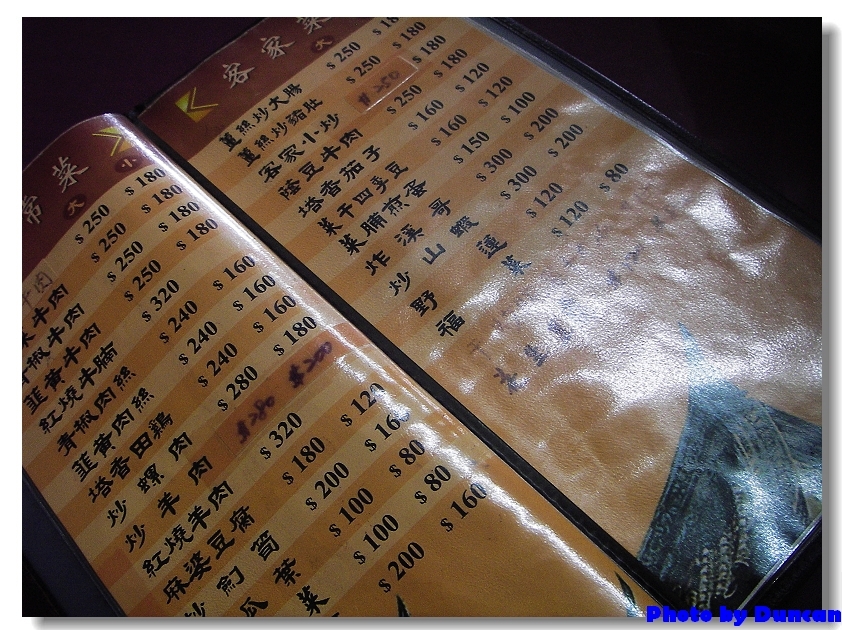 常菜
大 小
$250 $180
牛肉 $250 $180
青椒牛肉 $250 $180
韭黃牛肉 $250 $180
紅燒牛腩 $320
青椒肉絲 $240 $160
韭黃肉絲 $240 $160
塔香田雞 $240 $160
炒螺肉 $280 $180
炒羊肉 $280 $200
紅燒羊肉 $320
麻婆豆腐 $180 $120
炒劍筍 $200 $160
瓜葉 $100 $80
菜 $100 $80
$200 $160
客家菜
大
薑絲炒大腸 $250 $18
薑絲炒豬肚 $250 $180
客家小炒 $250 $180
蔭豆牛肉 $250 $180
塔香茄子 $160 $120
菜干四季豆 $160 $120
菜脯煎蛋 $150 $100
炸溪哥 $300 $200
炒山蝦 $300 $200
野蓮 $120
福菜 $120 $80
Photo by Duncan